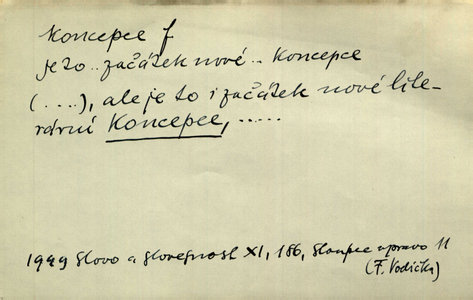 Koncepce f
je to .. začátek nové .. Koncepce
(....), ale je to i začátek nové lite-
rární Koncepce, .....
1949 Slovo a slovesnost XI, 186, sloupec vpravo 11
(F. Vodička)